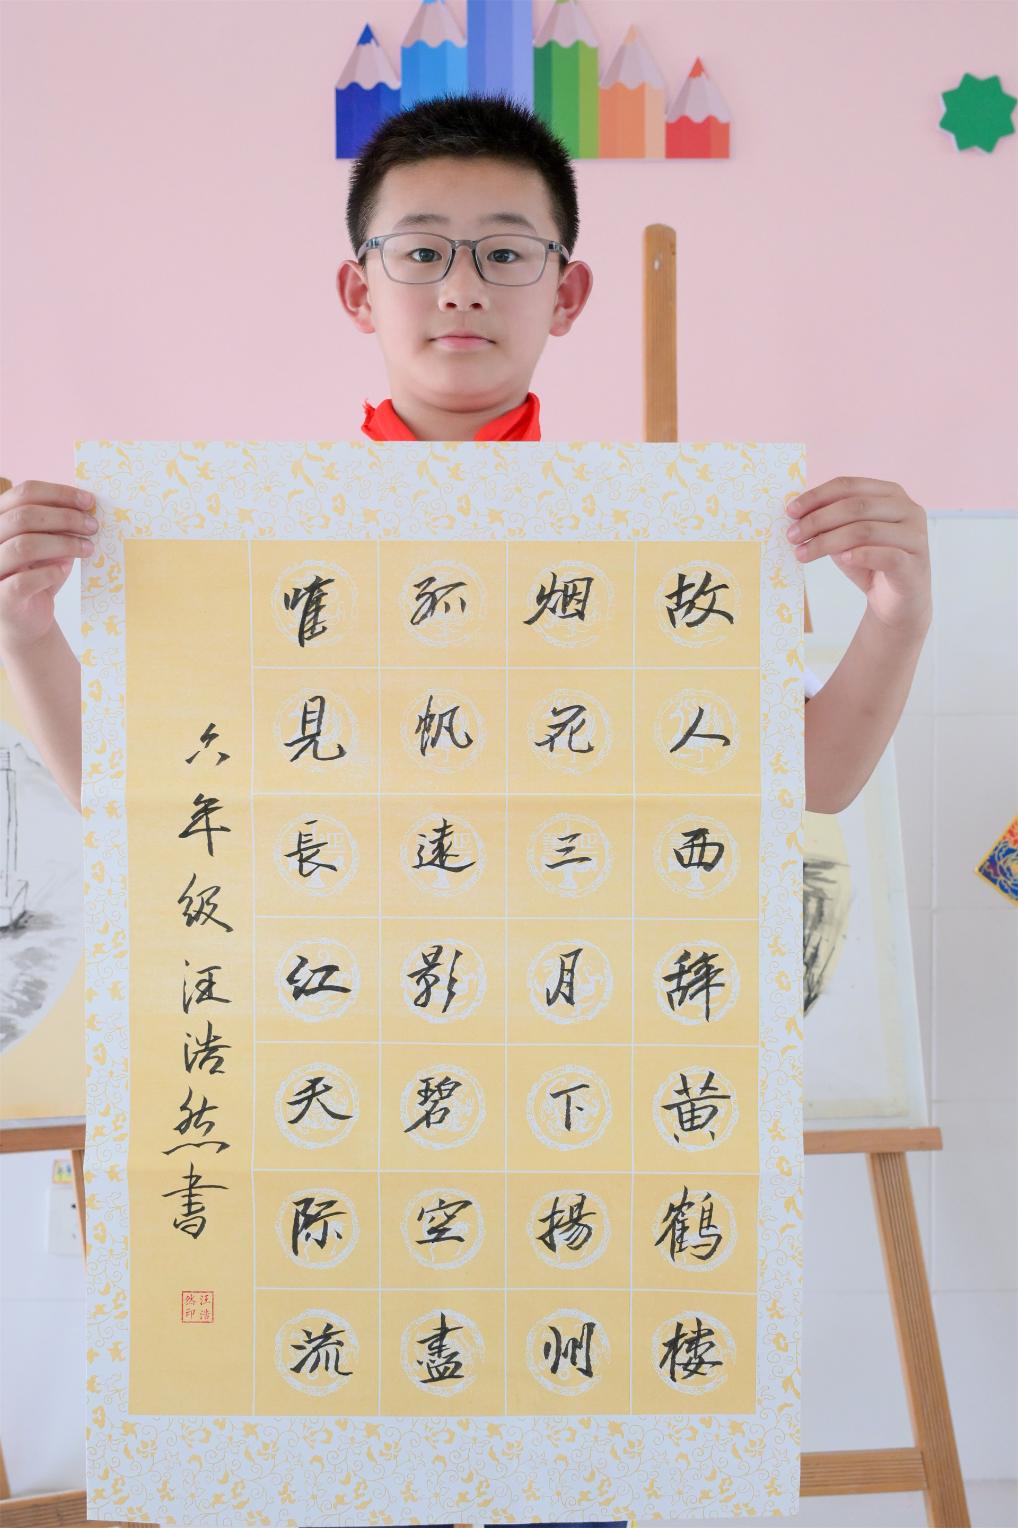 故人西辞黄鹤楼
烟花三月下揚州
孤帆遠影碧空盡
唯見長江天际流
六年级汪浩然書
汪浩然印